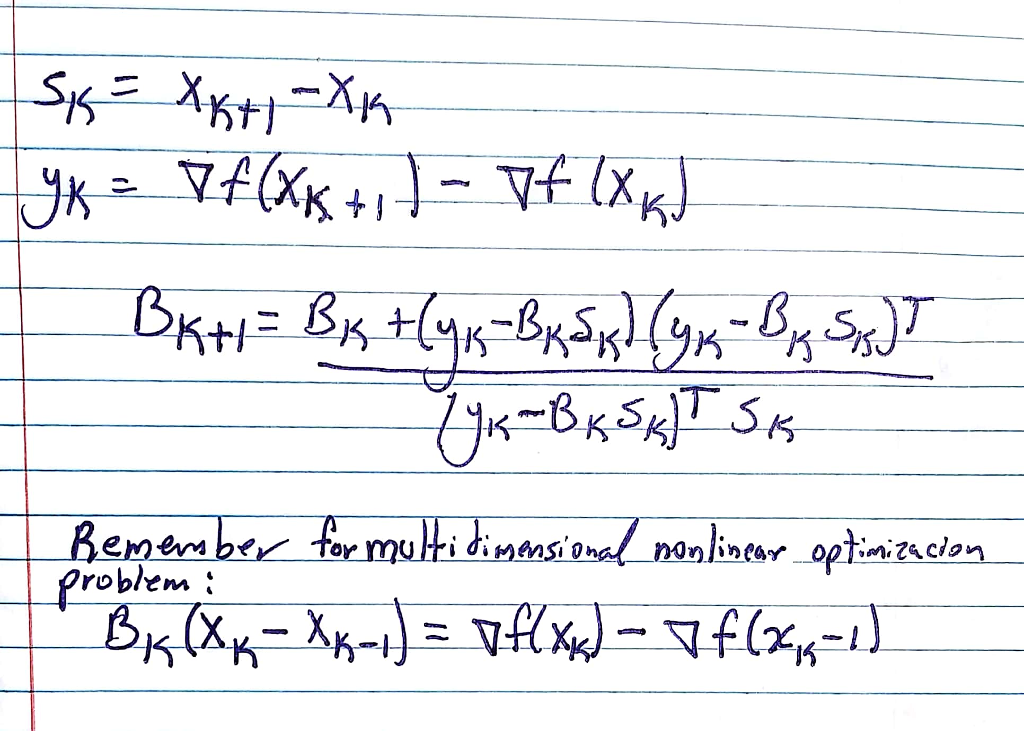 S_K = X_{K+1} - X_K
y_K = ∇f(X_{K+1}) - ∇f(X_K)
B_{K+1} = B_K + (y_K - B_K S_K)(y_K - B_K S_K)^T
(y_K - B_K S_K)^T S_K
Remember for multidimensional nonlinear optimizacion
problem:
B_K(X_K - X_{K-1}) = ∇f(X_K) - ∇f(x_{K-1})